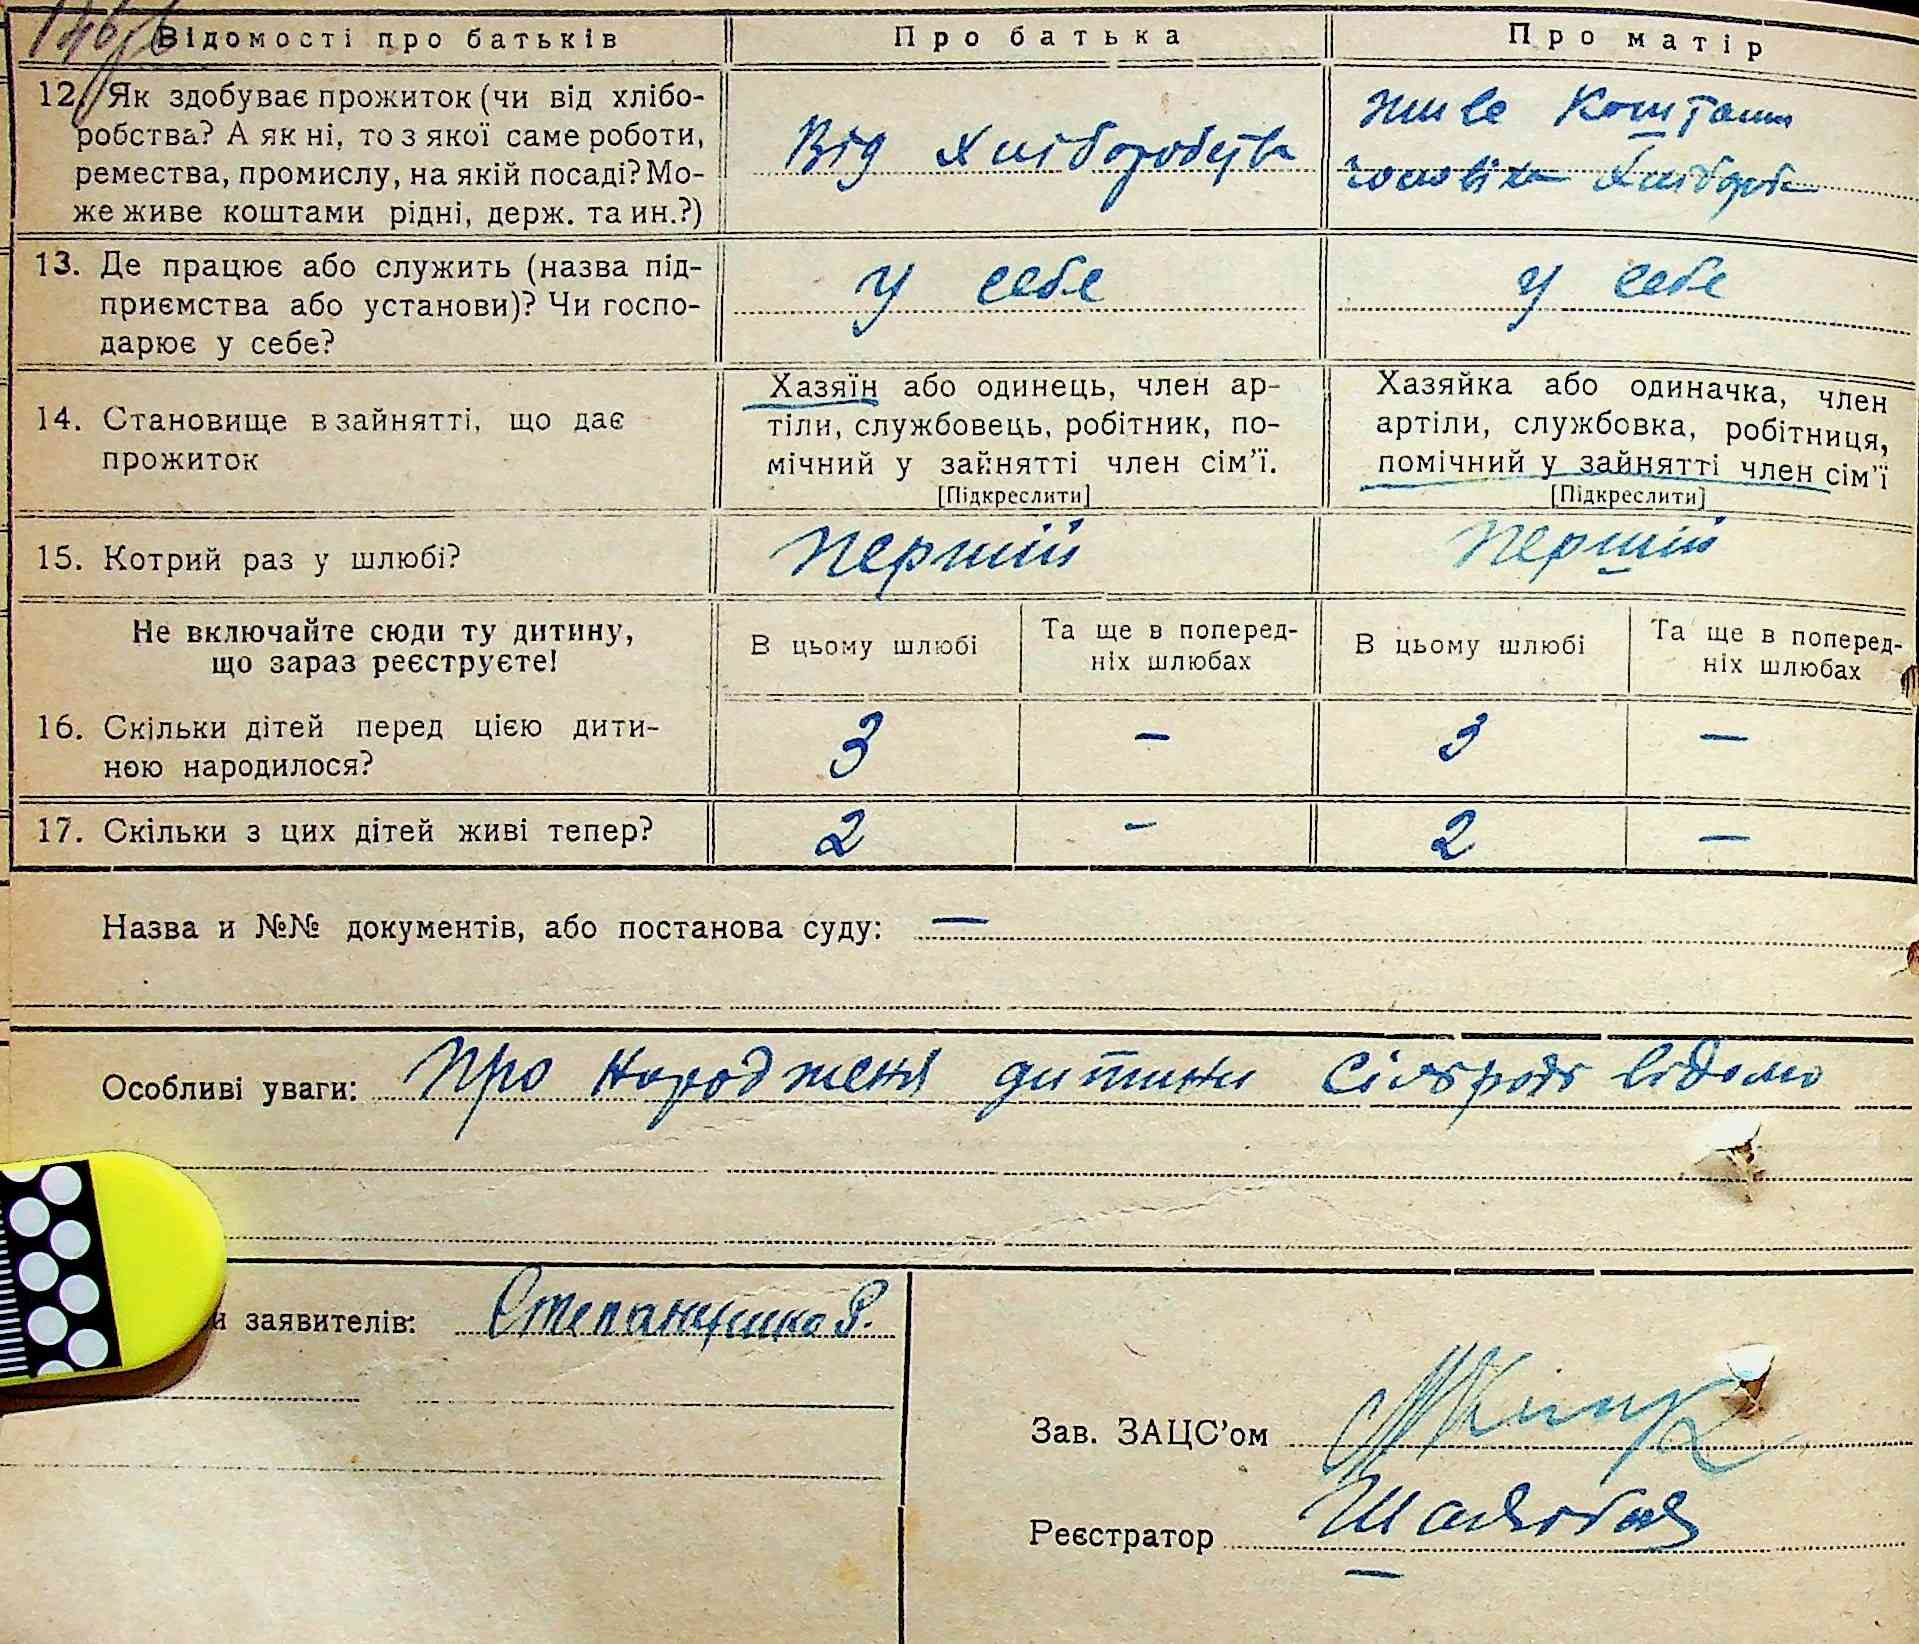 Відомості про батьків Про батька Про матір
12. Як здобуває прожиток (чи від хлібо-
робства? А як ні, то з якої саме роботи,
ремества, промислу, на якій посаді? Мо-
же живе коштами рідні, держ. та ин.?)
Від хліборобства
живе коштами
чоловіка
13. Де працює або служить (назва під-
приємства або установи)? Чи госпо-
дарює у себе?
у себе
у себе
14. Становище в зайнятті, що дає
прожиток
Хазяїн або одинець, член ар-
тіли, службовець, робітник, по-
мічний у зайнятті член сім'ї.
[Підкреслити]
Хазяйка або одиначка, член
артіли, службовка, робітниця,
помічний у зайнятті член сім'ї
[Підкреслити]
15. Котрий раз у шлюбі?
перший
перший
Не включайте сюди ту дитину,
що зараз реєструєте!
В цьому шлюбі
Та ще в поперед-
ніх шлюбах
В цьому шлюбі
Та ще в поперед-
ніх шлюбах
16. Скільки дітей перед цією дити-
ною народилося?
3 – 3 –
17. Скільки з цих дітей живі тепер?
2 – 2 –
Назва и №№ документів, або постанова суду: –
Особливі уваги: Про народженя дитини сільраді відомо
заявителів:
Зав. ЗАЦС'ом
Реєстратор